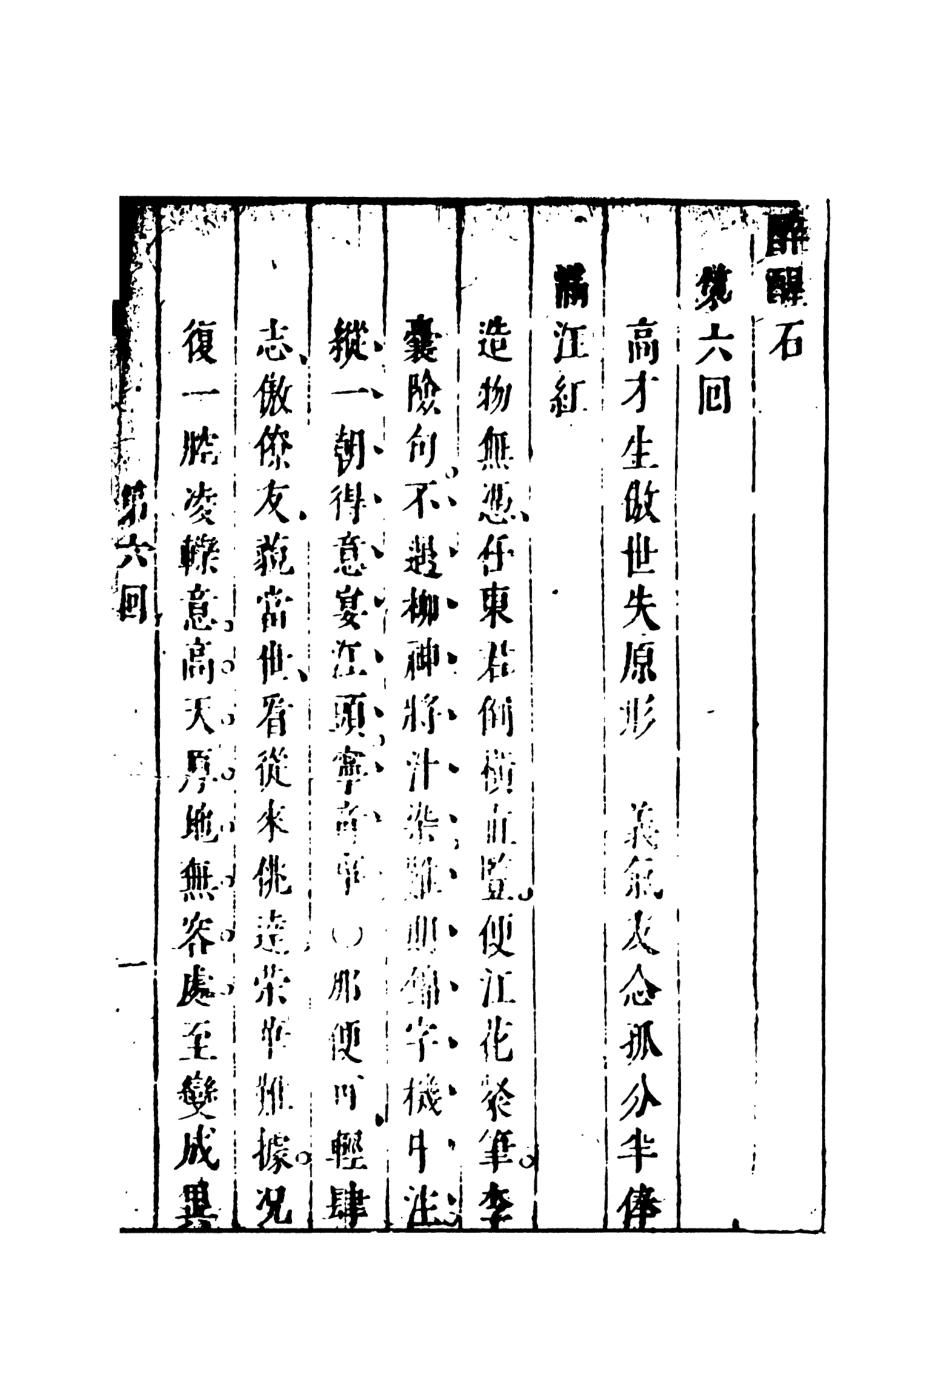 醉醒石
第六回
高才生傲世失原形　義氣友念孤分半俸
滿江紅
造物無憑任東君倒橫直豎便江花夢筆李
囊險句不遇柳神將汁染難期錦字機中注
縱一朝得意宴江頭寧奇事〇那便可輕肆
志傲僚友藐當世看從來佻達榮華難據况
復一腔凌轢意高天厚地無容處至變成異
第六回
一